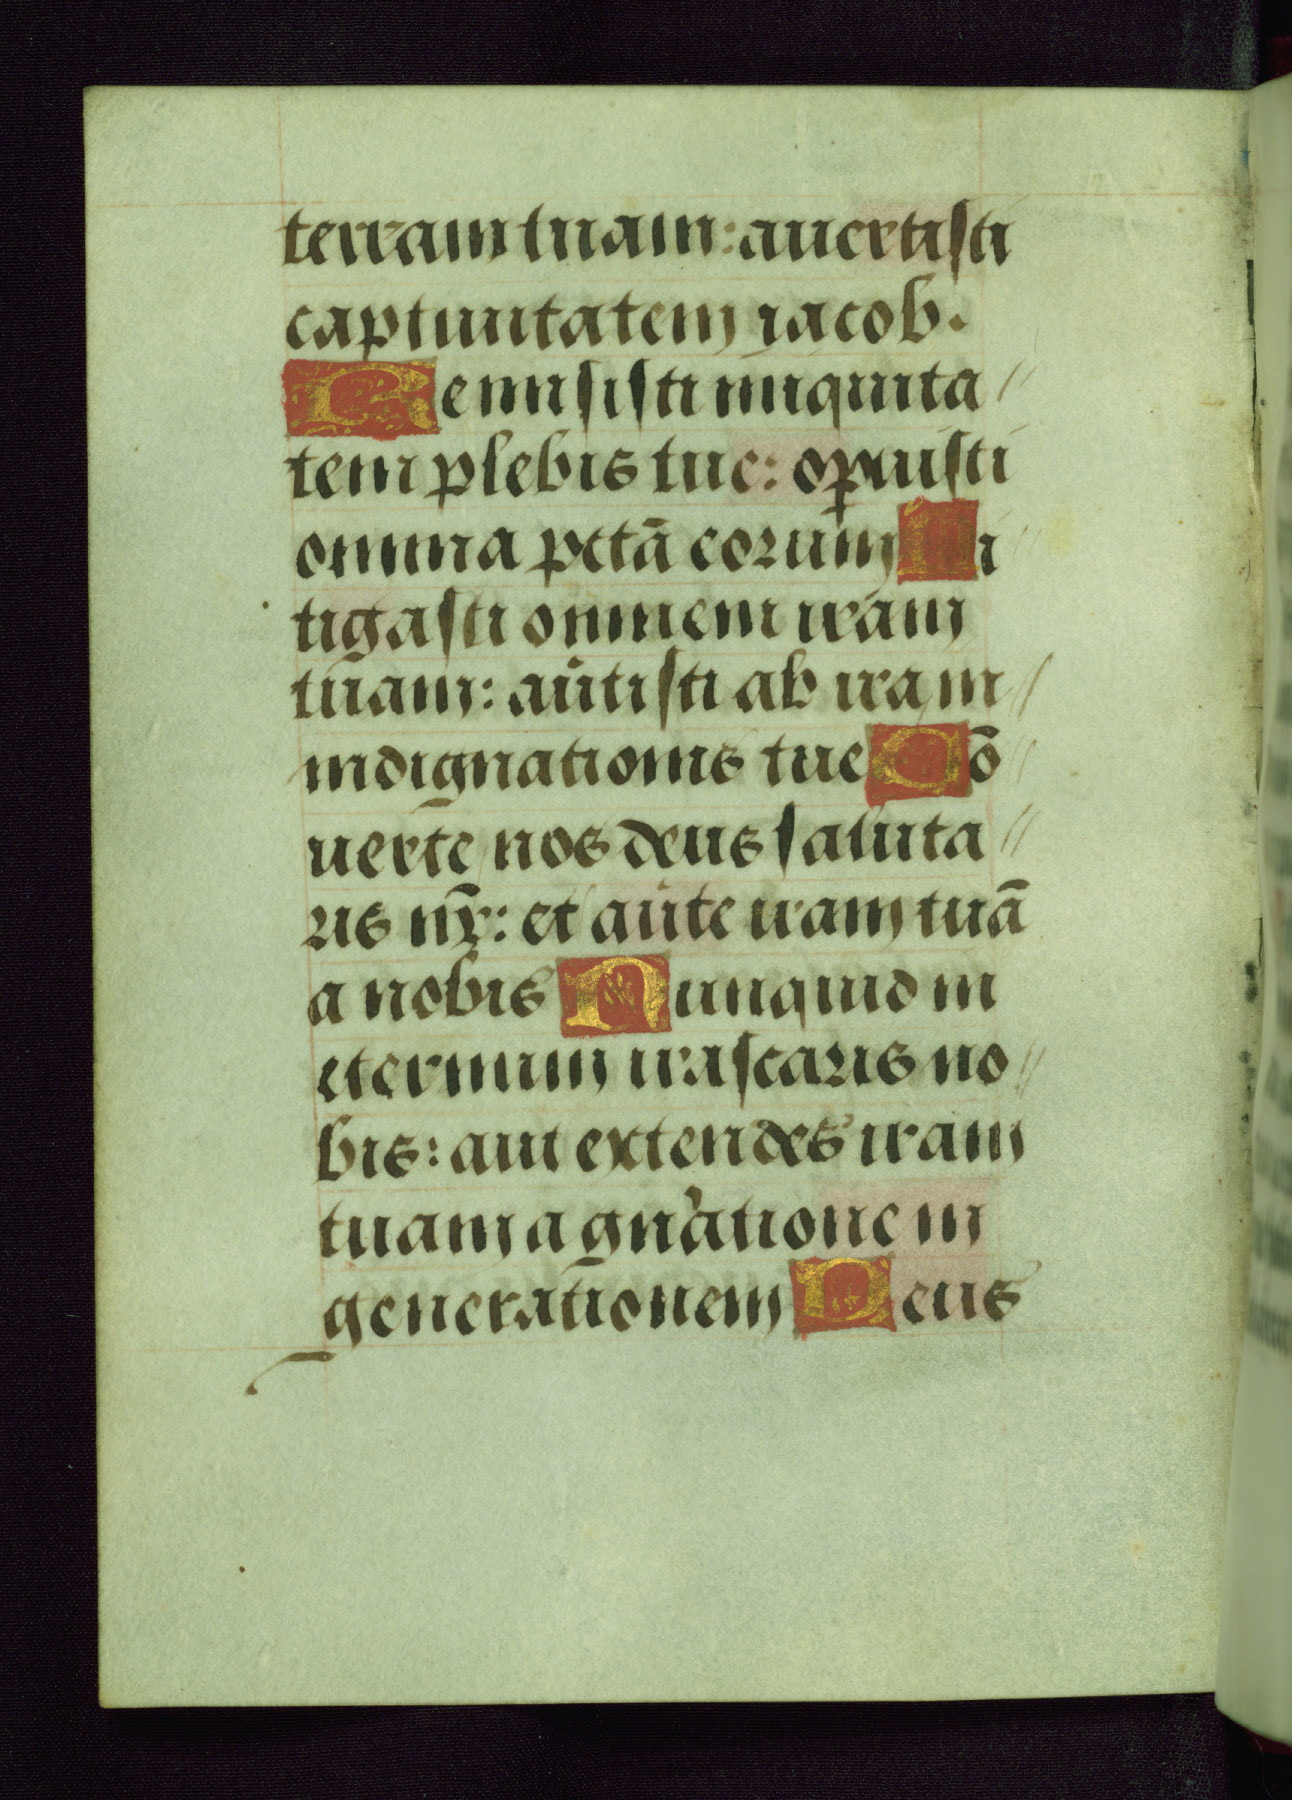 terram tuam: auertisti
captiuitatem iacob.
Remisisti iniquita//
tem plebis tue: opuisti
omnia pctā eorum Mi
tigasti omnem iram
tuam: au̾tisti ab ira in//
indignationis tue Cō
uerte nos deus saluta//
ris nr̄: et au̾te iram tuā
a nobis Nunquid in
eternum irascaris no//
bis: aut extendes iram
tuam a gn̾atione in
generationem Deus